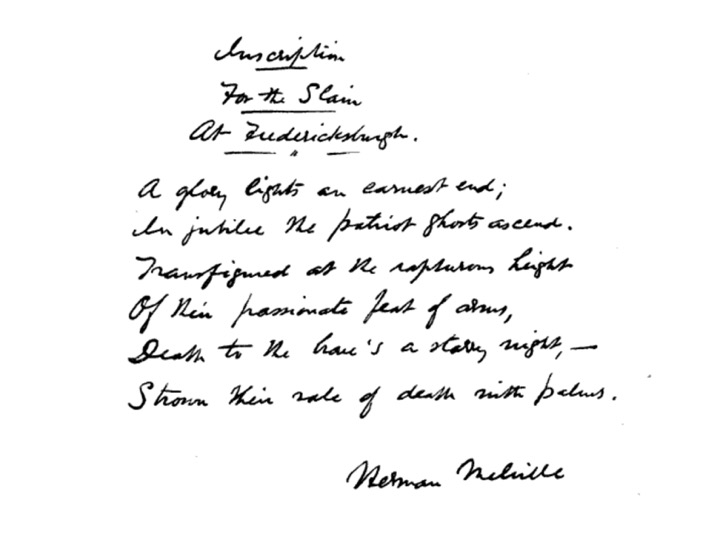 Inscription
For the Slain
At Fredericksburgh.
A glory lights an earnest end;
In jubilee the patriot ghosts ascend.
Transfigured at the rapturous height
Of their passionate feat of arms,
Death to the brave's a starry night, —
Strown their vale of death with palms.
Herman Melville